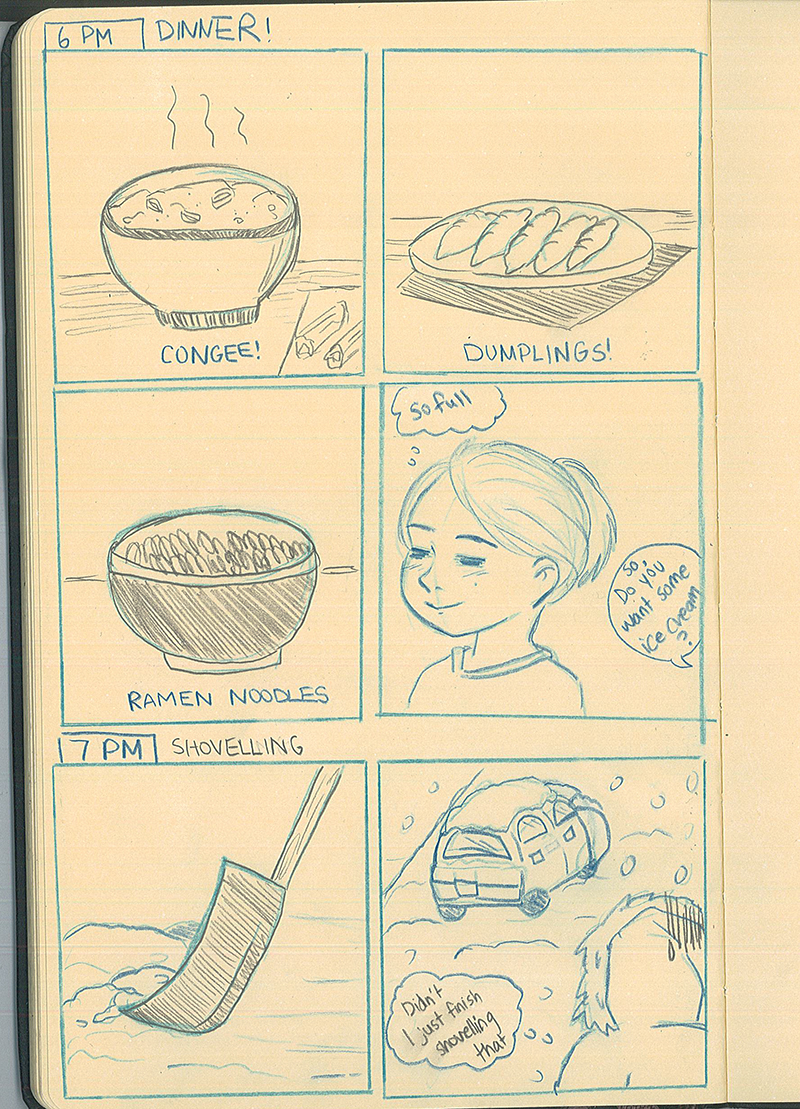 6 PM DINNER!
CONGEE!
DUMPLINGS!
RAMEN NOODLES
So full
So,
Do you
want some
ice cream
?
7 PM SHOVELLING
Didn't
I just finish
shovelling
that